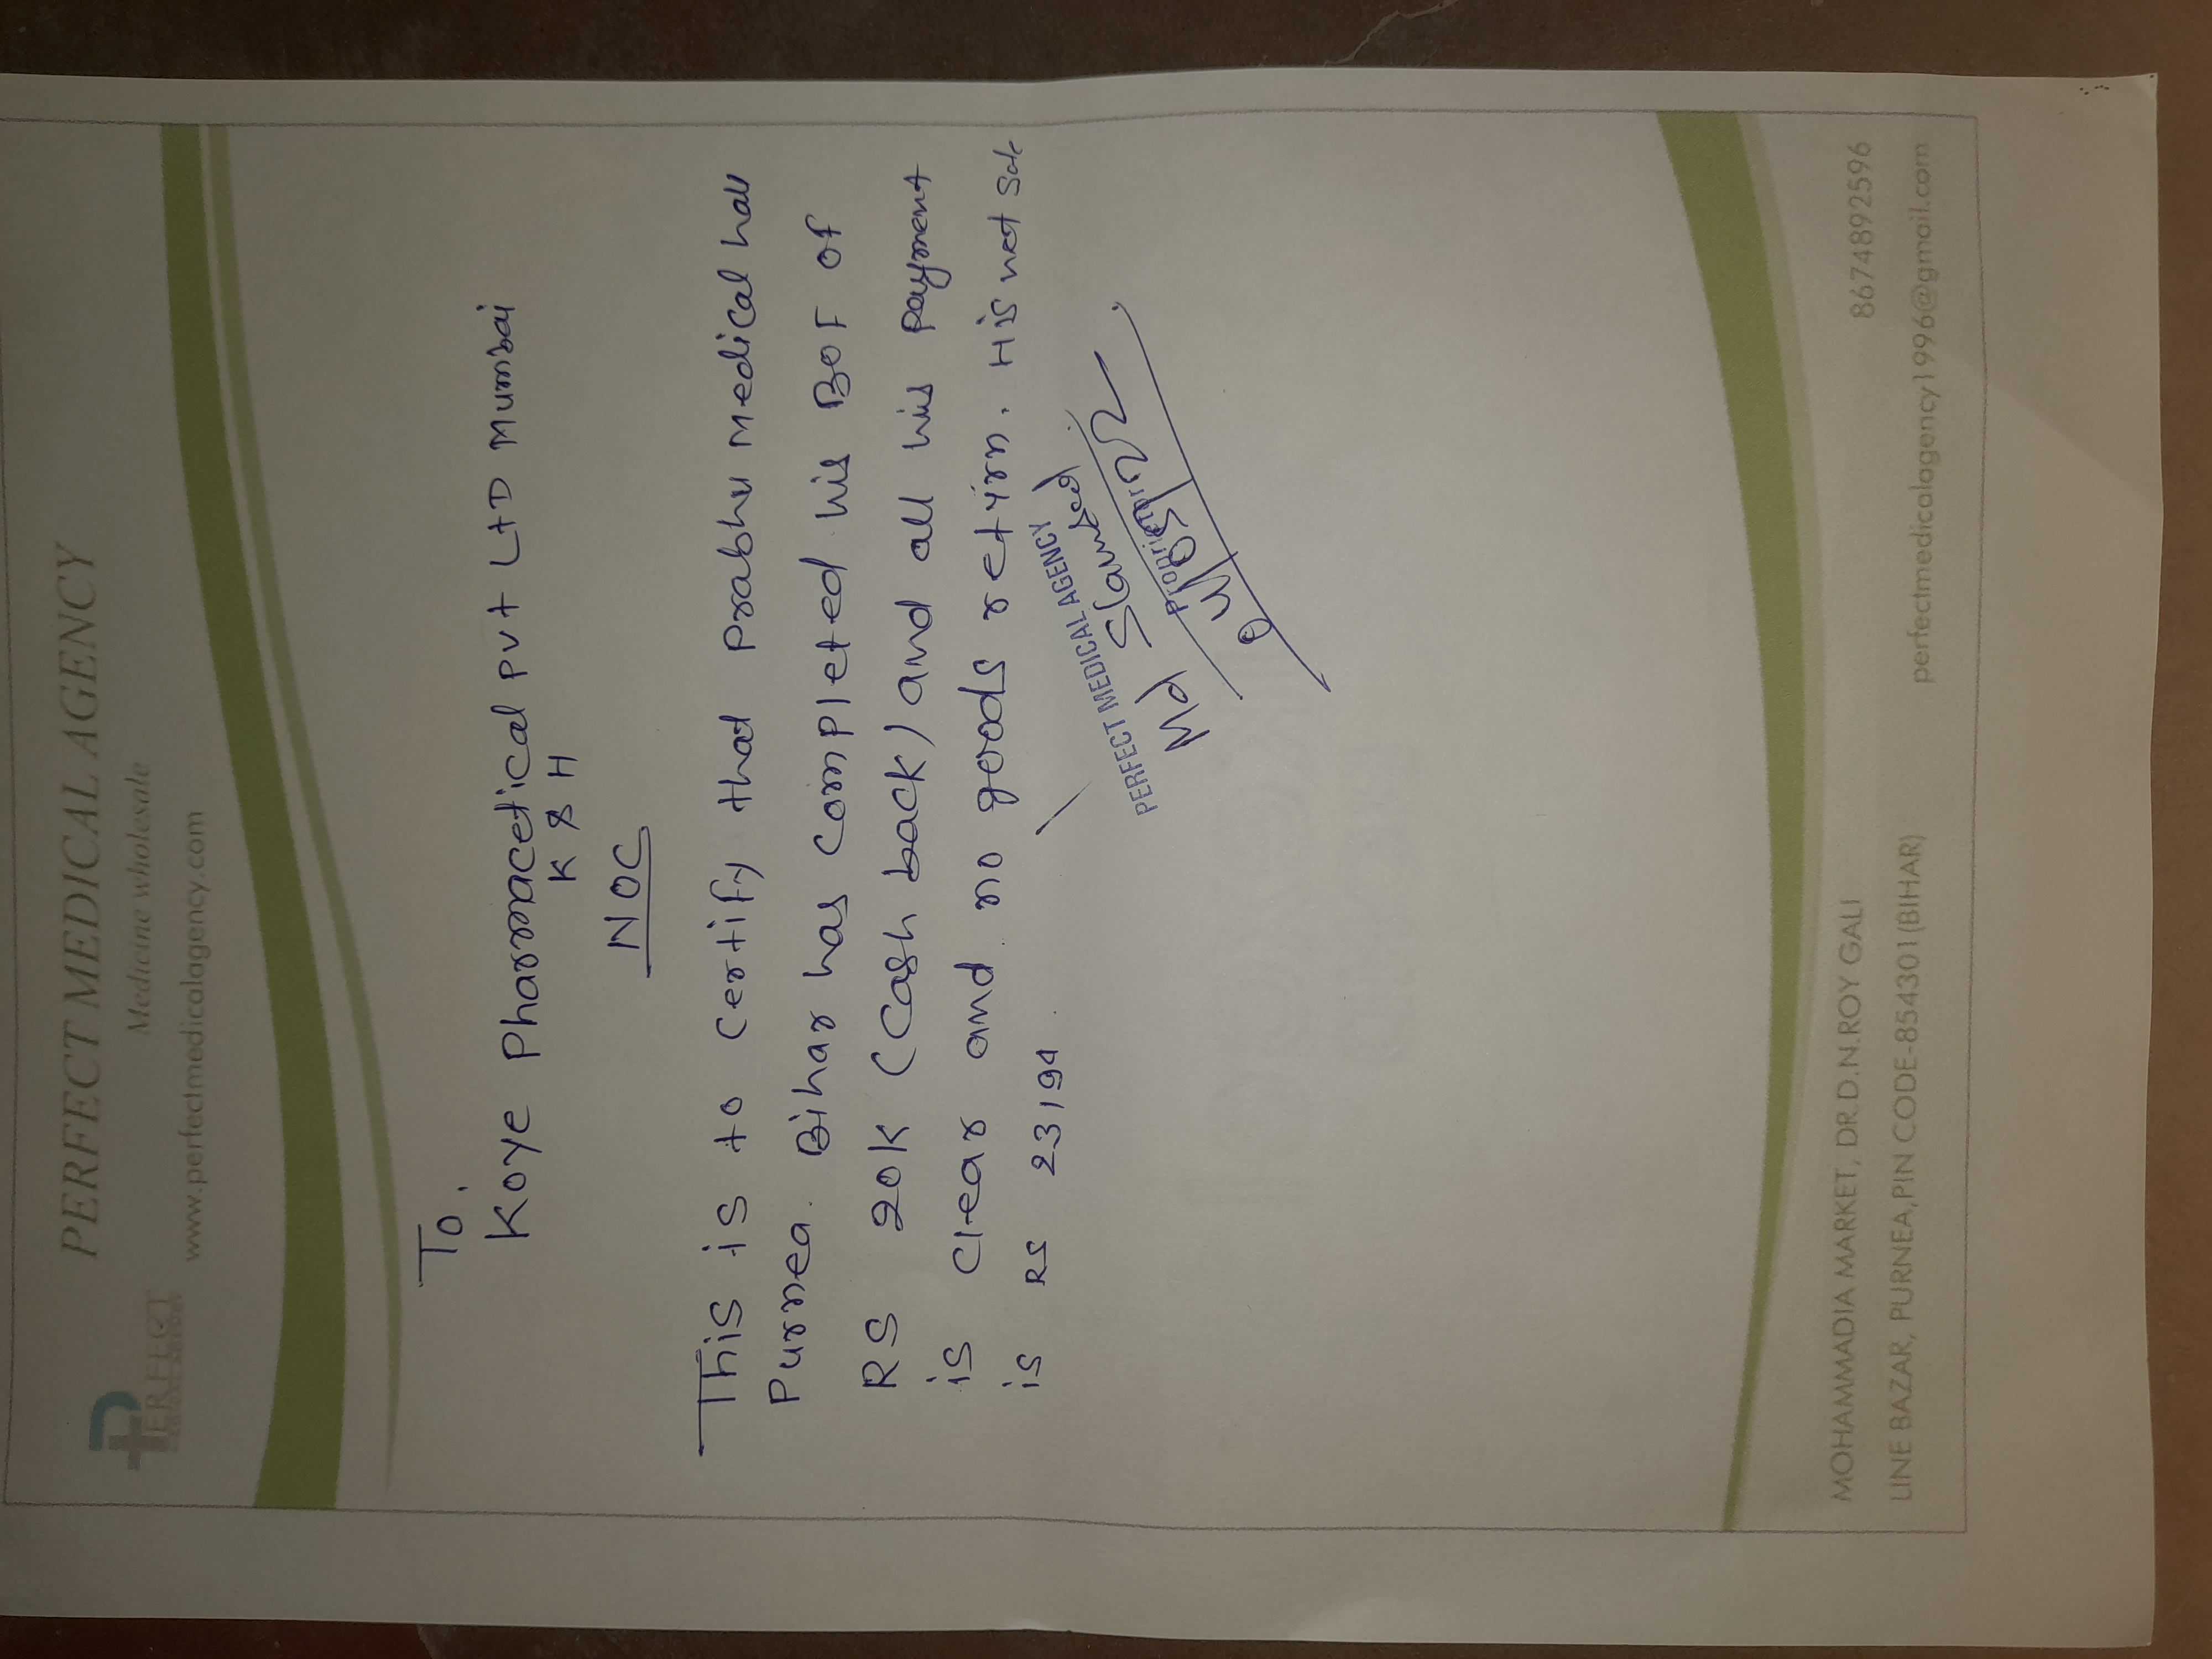 PERFECT
PERFECT MEDICAL AGENCY
Medicine wholesale
www.perfectmedicalagency.com
To,
Koye Pharmacetical pvt LTD Mumbai
K & H
NOC
This is to certify that Prabhu Medical hall
Purnea. Bihar has completed his BOF of
RS 20K (Cash back) and all his payment
is clear and no goods retirn. His net Sale
is RS 23194
PERFECT MEDICAL AGENCY
Md
Proprietor
MOHAMMADIA MARKET, DR.D.N.ROY GALI
8674892596
LINE BAZAR, PURNEA,PIN CODE-854301(BIHAR)
perfectmedicalagency1996@gmail.com